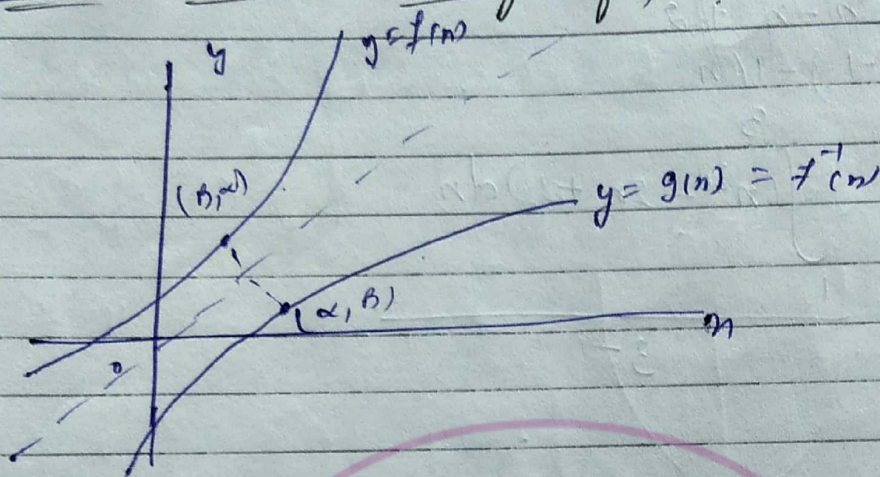 y
y = f(x)
(β, α)
y = g(x) = f⁻¹(x)
(α, β)
x
0